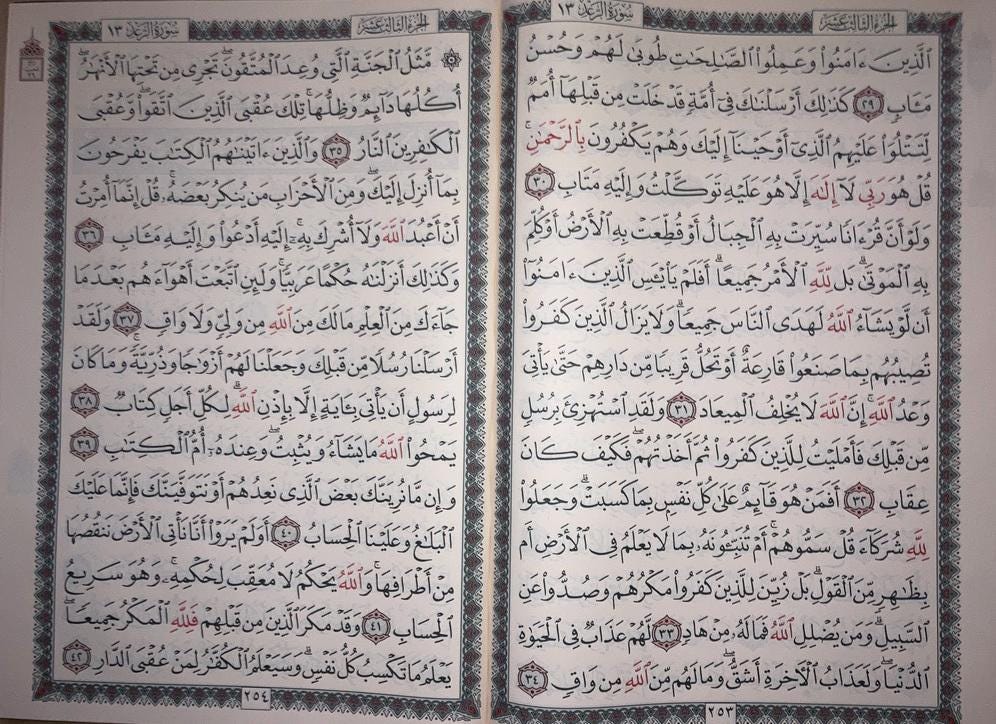 سُورَةُ الرَّعْدِ ١٣
الجُزءُ الثَّالِثَ عَشَرَ
ٱلَّذِينَ ءَامَنُوا۟ وَعَمِلُوا۟ ٱلصَّٰلِحَٰتِ طُوبَىٰ لَهُمْ وَحُسْنُ
مَـَٔابٍ ٢٩ كَذَٰلِكَ أَرْسَلْنَٰكَ فِىٓ أُمَّةٍ قَدْ خَلَتْ مِن قَبْلِهَآ أُمَمٌ
لِّتَتْلُوَا۟ عَلَيْهِمُ ٱلَّذِىٓ أَوْحَيْنَآ إِلَيْكَ وَهُمْ يَكْفُرُونَ بِٱلرَّحْمَٰنِ ۚ
قُلْ هُوَ رَبِّى لَآ إِلَٰهَ إِلَّا هُوَ عَلَيْهِ تَوَكَّلْتُ وَإِلَيْهِ مَتَابِ ٣٠
وَلَوْ أَنَّ قُرْءَانًا سُيِّرَتْ بِهِ ٱلْجِبَالُ أَوْ قُطِّعَتْ بِهِ ٱلْأَرْضُ أَوْ كُلِّمَ
بِهِ ٱلْمَوْتَىٰ ۗ بَل لِّلَّهِ ٱلْأَمْرُ جَمِيعًا ۗ أَفَلَمْ يَا۟يْـَٔسِ ٱلَّذِينَ ءَامَنُوٓا۟
أَن لَّوْ يَشَآءُ ٱللَّهُ لَهَدَى ٱلنَّاسَ جَمِيعًا ۗ وَلَا يَزَالُ ٱلَّذِينَ كَفَرُوا۟
تُصِيبُهُم بِمَا صَنَعُوا۟ قَارِعَةٌ أَوْ تَحُلُّ قَرِيبًا مِّن دَارِهِمْ حَتَّىٰ يَأْتِىَ
وَعْدُ ٱللَّهِ ۚ إِنَّ ٱللَّهَ لَا يُخْلِفُ ٱلْمِيعَادَ ٣١ وَلَقَدِ ٱسْتُهْزِئَ بِرُسُلٍ
مِّن قَبْلِكَ فَأَمْلَيْتُ لِلَّذِينَ كَفَرُوا۟ ثُمَّ أَخَذْتُهُمْ ۖ فَكَيْفَ كَانَ
عِقَابِ ٣٢ أَفَمَنْ هُوَ قَآئِمٌ عَلَىٰ كُلِّ نَفْسٍۭ بِمَا كَسَبَتْ ۗ وَجَعَلُوا۟
لِلَّهِ شُرَكَآءَ قُلْ سَمُّوهُمْ ۚ أَمْ تُنَبِّـُٔونَهُۥ بِمَا لَا يَعْلَمُ فِى ٱلْأَرْضِ أَم
بِظَٰهِرٍ مِّنَ ٱلْقَوْلِ ۗ بَلْ زُيِّنَ لِلَّذِينَ كَفَرُوا۟ مَكْرُهُمْ وَصُدُّوا۟ عَنِ
ٱلسَّبِيلِ ۗ وَمَن يُضْلِلِ ٱللَّهُ فَمَا لَهُۥ مِنْ هَادٍ ٣٣ لَّهُمْ عَذَابٌ فِى ٱلْحَيَوٰةِ
ٱلدُّنْيَا ۖ وَلَعَذَابُ ٱلْـَٔاخِرَةِ أَشَقُّ ۖ وَمَا لَهُم مِّنَ ٱللَّهِ مِن وَاقٍ ٣٤
٢٥٣
سُورَةُ الرَّعْدِ ١٣
الجُزءُ الثَّالِثَ عَشَرَ
۞ مَّثَلُ ٱلْجَنَّةِ ٱلَّتِى وُعِدَ ٱلْمُتَّقُونَ ۖ تَجْرِى مِن تَحْتِهَا ٱلْأَنْهَٰرُ ۖ
أُكُلُهَا دَآئِمٌ وَظِلُّهَا ۚ تِلْكَ عُقْبَى ٱلَّذِينَ ٱتَّقَوا۟ ۖ وَّعُقْبَى
ٱلْكَٰفِرِينَ ٱلنَّارُ ٣٥ وَٱلَّذِينَ ءَاتَيْنَٰهُمُ ٱلْكِتَٰبَ يَفْرَحُونَ
بِمَآ أُنزِلَ إِلَيْكَ ۖ وَمِنَ ٱلْأَحْزَابِ مَن يُنكِرُ بَعْضَهُۥ ۚ قُلْ إِنَّمَآ أُمِرْتُ
أَنْ أَعْبُدَ ٱللَّهَ وَلَآ أُشْرِكَ بِهِۦٓ ۚ إِلَيْهِ أَدْعُوا۟ وَإِلَيْهِ مَـَٔابِ ٣٦
وَكَذَٰلِكَ أَنزَلْنَٰهُ حُكْمًا عَرَبِيًّا ۚ وَلَئِنِ ٱتَّبَعْتَ أَهْوَآءَهُم بَعْدَ مَا
جَآءَكَ مِنَ ٱلْعِلْمِ مَا لَكَ مِنَ ٱللَّهِ مِن وَلِىٍّ وَلَا وَاقٍ ٣٧ وَلَقَدْ
أَرْسَلْنَا رُسُلًا مِّن قَبْلِكَ وَجَعَلْنَا لَهُمْ أَزْوَٰجًا وَذُرِّيَّةً ۚ وَمَا كَانَ
لِرَسُولٍ أَن يَأْتِىَ بِـَٔايَةٍ إِلَّا بِإِذْنِ ٱللَّهِ ۗ لِكُلِّ أَجَلٍ كِتَابٌ ٣٨
يَمْحُوا۟ ٱللَّهُ مَا يَشَآءُ وَيُثْبِتُ ۖ وَعِندَهُۥٓ أُمُّ ٱلْكِتَٰبِ ٣٩
وَإِن مَّا نُرِيَنَّكَ بَعْضَ ٱلَّذِى نَعِدُهُمْ أَوْ نَتَوَفَّيَنَّكَ فَإِنَّمَا عَلَيْكَ
ٱلْبَلَٰغُ وَعَلَيْنَا ٱلْحِسَابُ ٤٠ أَوَلَمْ يَرَوْا۟ أَنَّا نَأْتِى ٱلْأَرْضَ نَنقُصُهَا
مِنْ أَطْرَافِهَا ۚ وَٱللَّهُ يَحْكُمُ لَا مُعَقِّبَ لِحُكْمِهِۦ ۚ وَهُوَ سَرِيعُ
ٱلْحِسَابِ ٤١ وَقَدْ مَكَرَ ٱلَّذِينَ مِن قَبْلِهِمْ فَلِلَّهِ ٱلْمَكْرُ جَمِيعًا ۖ
يَعْلَمُ مَا تَكْسِبُ كُلُّ نَفْسٍ ۗ وَسَيَعْلَمُ ٱلْكُفَّٰرُ لِمَنْ عُقْبَى ٱلدَّارِ ٤٢
٢٥٤